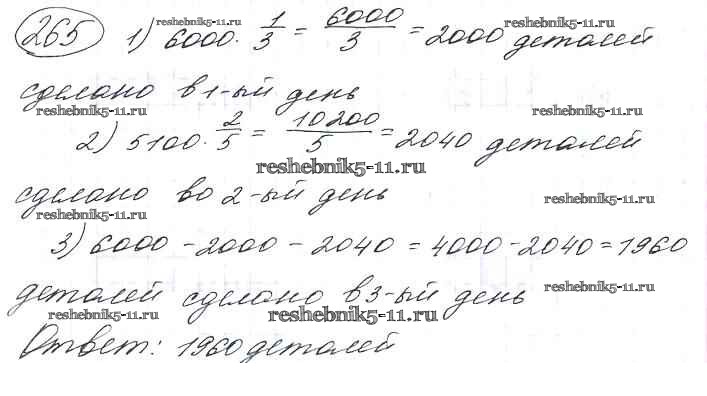 265 1) 6000 · 1/3 = 6000/3 = 2000 деталей
reshebnik5-11.ru reshebnik5-11.ru
сделано в 1-ый день
reshebnik5-11.ru reshebnik5-11.ru
2) 5100 · 2/5 = 10200/5 = 2040 деталей
reshebnik5-11.ru
сделано во 2-ый день
reshebnik5-11.ru reshebnik5-11.ru
3) 6000 - 2000 - 2040 = 4000 - 2040 = 1960
деталей сделано в 3-ый день
reshebnik5-11.ru reshebnik5-11.ru reshebnik5-11.ru
Ответ: 1960 деталей